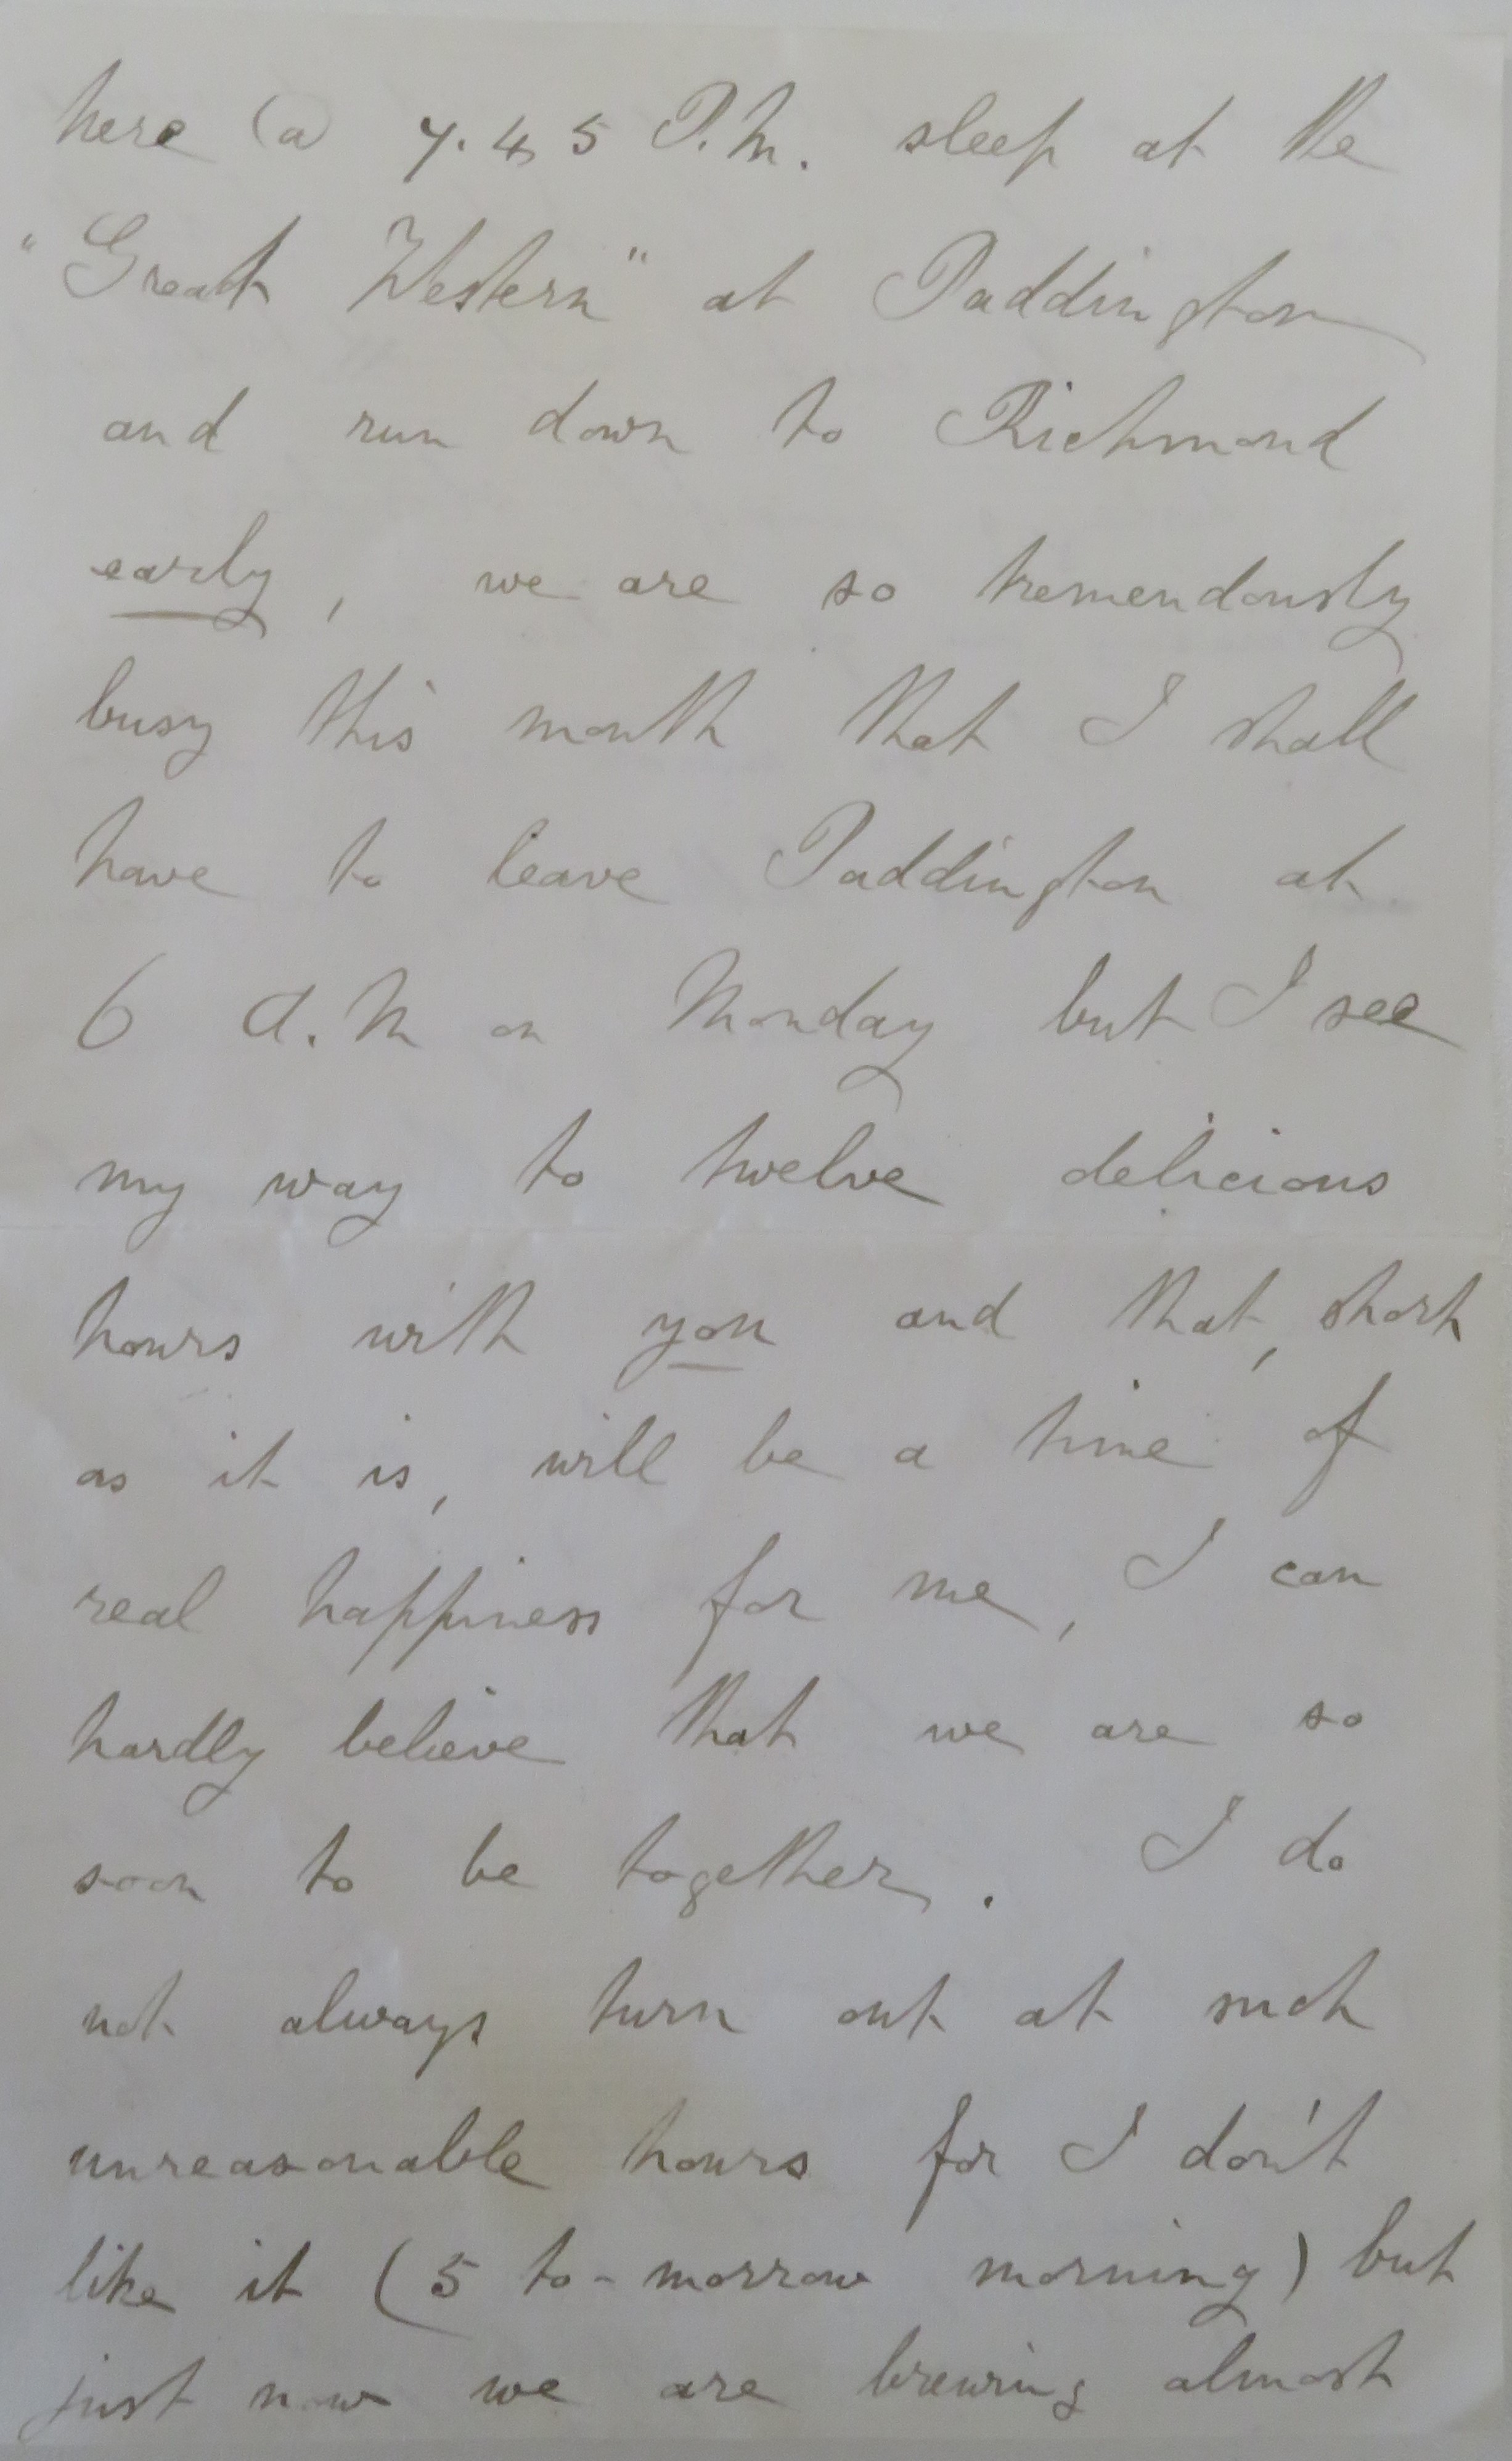 here @ 7.45 P.M. sleep at the
"Great Western" at Paddington
and run down to Richmond
early, we are so tremendously
busy this month that I shall
have to leave Paddington at
6 A.M on Monday but I see
my way to twelve delicious
hours with you and that, short
as it is, will be a time of
real happiness for me, I can
hardly believe that we are so
soon to be together. I do
not always turn out at such
unreasonable hours for I don't
like it (5 to-morrow morning) but
just now we are brewing almost